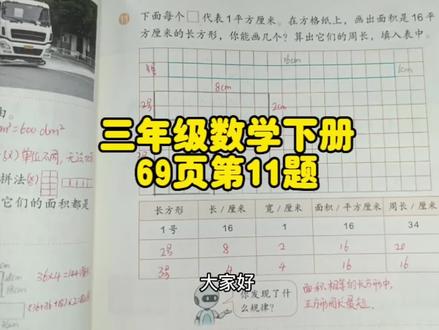 11 下面每个□代表1平方厘米。在方格纸上，画出面积是16平
方厘米的长方形，你能画几个？算出它们的周长，填入表中。
16cm
1cm
8cm
2号
2cm
由。
=600dm²
单位不同,无法
拼法
它们的面积都是
三年级数学下册
69页第11题
长方形 长/厘米 宽/厘米 面积/平方厘米 周长/厘米
1号 16 1 16 34
2号 8 2 16 20
3号 4 16
36×4=144
大家好
你发现了什
么规律？
面积相等的长方形中,
正方形周长最短.